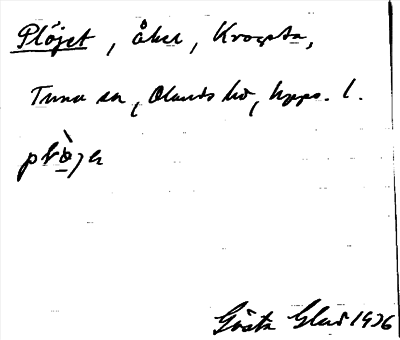 Plöjet, åker, Krogsta,
Tuna sn, Olands hd, Upps. l.
Gösta Glad 1936